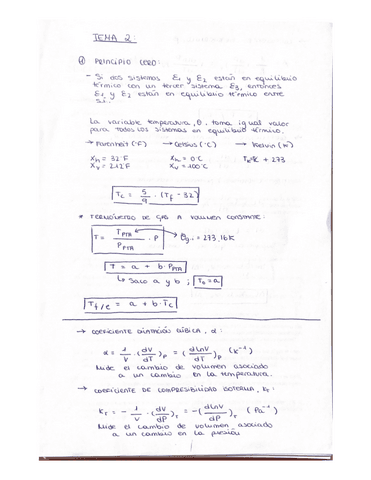 TEMA 2:
① PRINCIPIO CERO:
- Si dos sistemas ε1 y ε2 están en equilibrio
térmico con un tercer sistema ε3, entonces
ε1 y ε2 están en equilibrio térmico entre
sí.
La variable temperatura, θ, toma igual valor
para todos los sistemas en equilibrio térmico.
→ Farenheit (°F) → Celsius (°C) → Kelvin (K)
Xh = 32°F Xh = 0°C + 273
Xv = 212°F Xv = 100°C
Tc = 5/9 · (Tf - 32)
* TERMÓMETRO DE GAS A VOLUMEN CONSTANTE:
T = TPTA / PPTA · P = 273,16K
T = a + b · PPTA
↳ Saco a y b ;
Tf/e = a + b · Tc
→ COEFICIENTE DILATACIÓN CÚBICA, α:
α = 1/V · (dV/dT)P = (dLnV/dT)P (K⁻¹)
Mide el cambio de volumen asociado
a un cambio en la temperatura.
→ COEFICIENTE DE COMPRESIBILIDAD ISOTERMA, KT:
KT = - 1/V · (dV/dP)T = -(dLnV/dP)T (Pa⁻¹)
Mide el cambio de volumen asociado
a un cambio en la presión